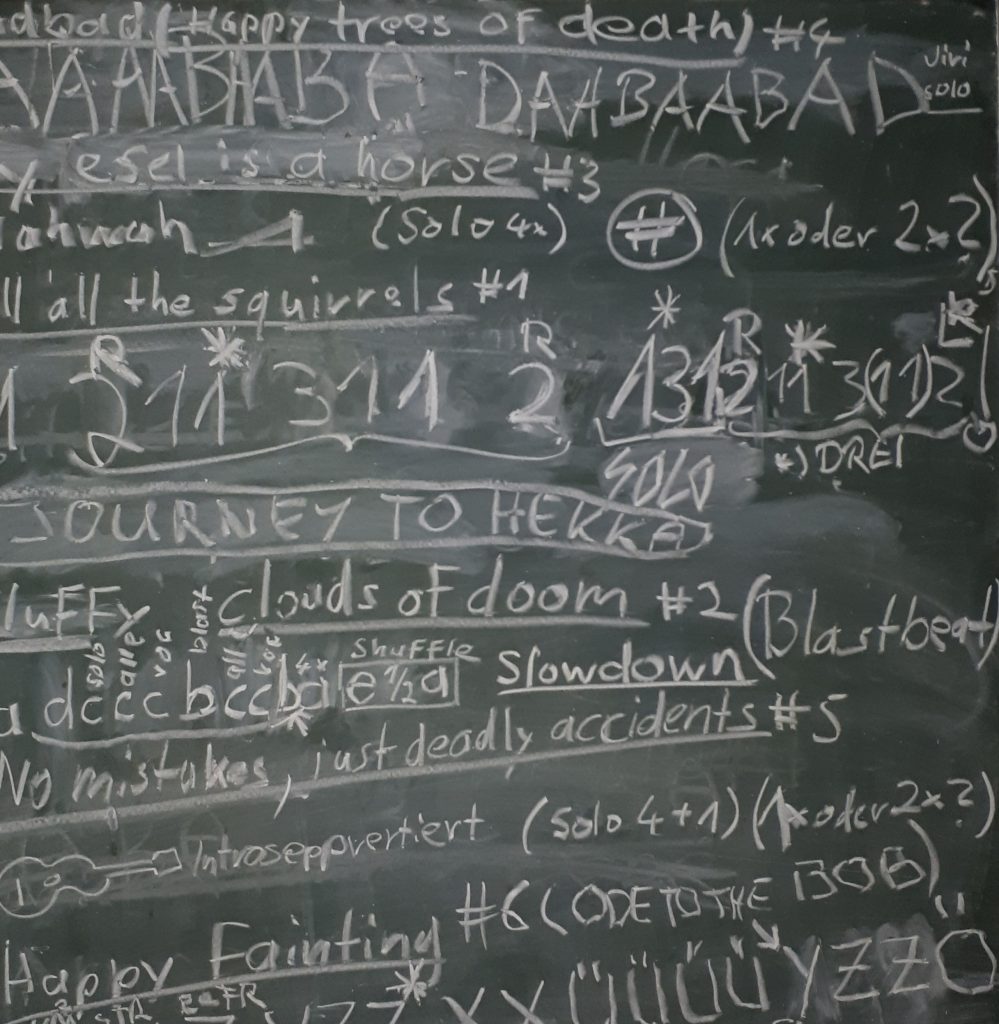 dbad (Happy trees of death) #4
AAAABAABA DAABAABAD Jivi solo
esel is a horse #3
(Solo 4x) # (1x oder 2x?)
all the squirrels #1
R * R * R *
1 2 1 1 3 1 1 1 2 1312 11 3(11)2
SOLO *) DREI
JOURNEY TO HEKKA
luffy Clouds of doom #2 (Blastbeat)
solo alle voc blast alle voc 4x Shuffle
a dcccbccba e½a Slowdown
No mistakes, just deadly accidents #5
Introseppvertiert (Solo 4+1) (1x oder 2x?)
Happy Fainting #6 (ODE TO THE BOB)
XXÜÜÜÜYZZÖ